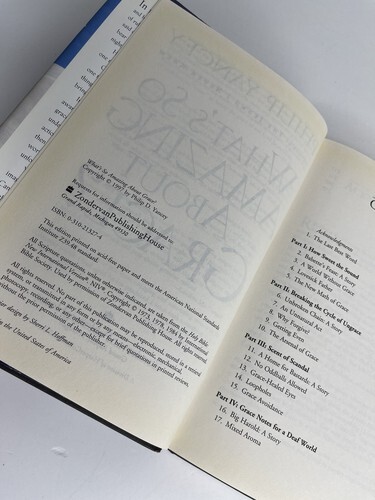 What's So Amazing About Grace?
Copyright © 1997 by Philip D. Yancey
Requests for information should be addressed to:
ZondervanPublishingHouse
Grand Rapids, Michigan 49530
ISBN: 0-310-21327-4
This edition printed on acid-free paper and meets the American National Standards
Institute Z39.48 standard.
All Scripture quotations, unless otherwise indicated, are taken from the Holy Bible:
New International Version®. NIV®. Copyright © 1973, 1978, 1984 by International
Bible Society. Used by permission of Zondervan Publishing House. All rights reserved.
All rights reserved. No part of this publication may be reproduced, stored in a retrieval
system, or transmitted in any form or by any means—electronic, mechanical,
photocopy, recording, or any other—except for brief quotations in printed reviews,
without the prior permission of the publisher.
design by Sherri L. Hoffman
in the United States of America
Acknowledgments
1. The Last Best Word
Part I: How Sweet the Sound
2. Babette's Feast: A Story
3. A World Without Grace
4. Lovesick Father
5. The New Math of Grace
Part II: Breaking the Cycle of Ungrace
6. Unbroken Chain: A Story
7. An Unnatural Act
8. Why Forgive?
9. Getting Even
10. The Arsenal of Grace
Part III: Scent of Scandal
11. A Home for Bastards: A Story
12. No Oddballs Allowed
13. Grace-Healed Eyes
14. Loopholes
15. Grace Avoidance
Part IV: Grace Notes for a Deaf World
16. Big Harold: A Story
17. Mixed Aroma